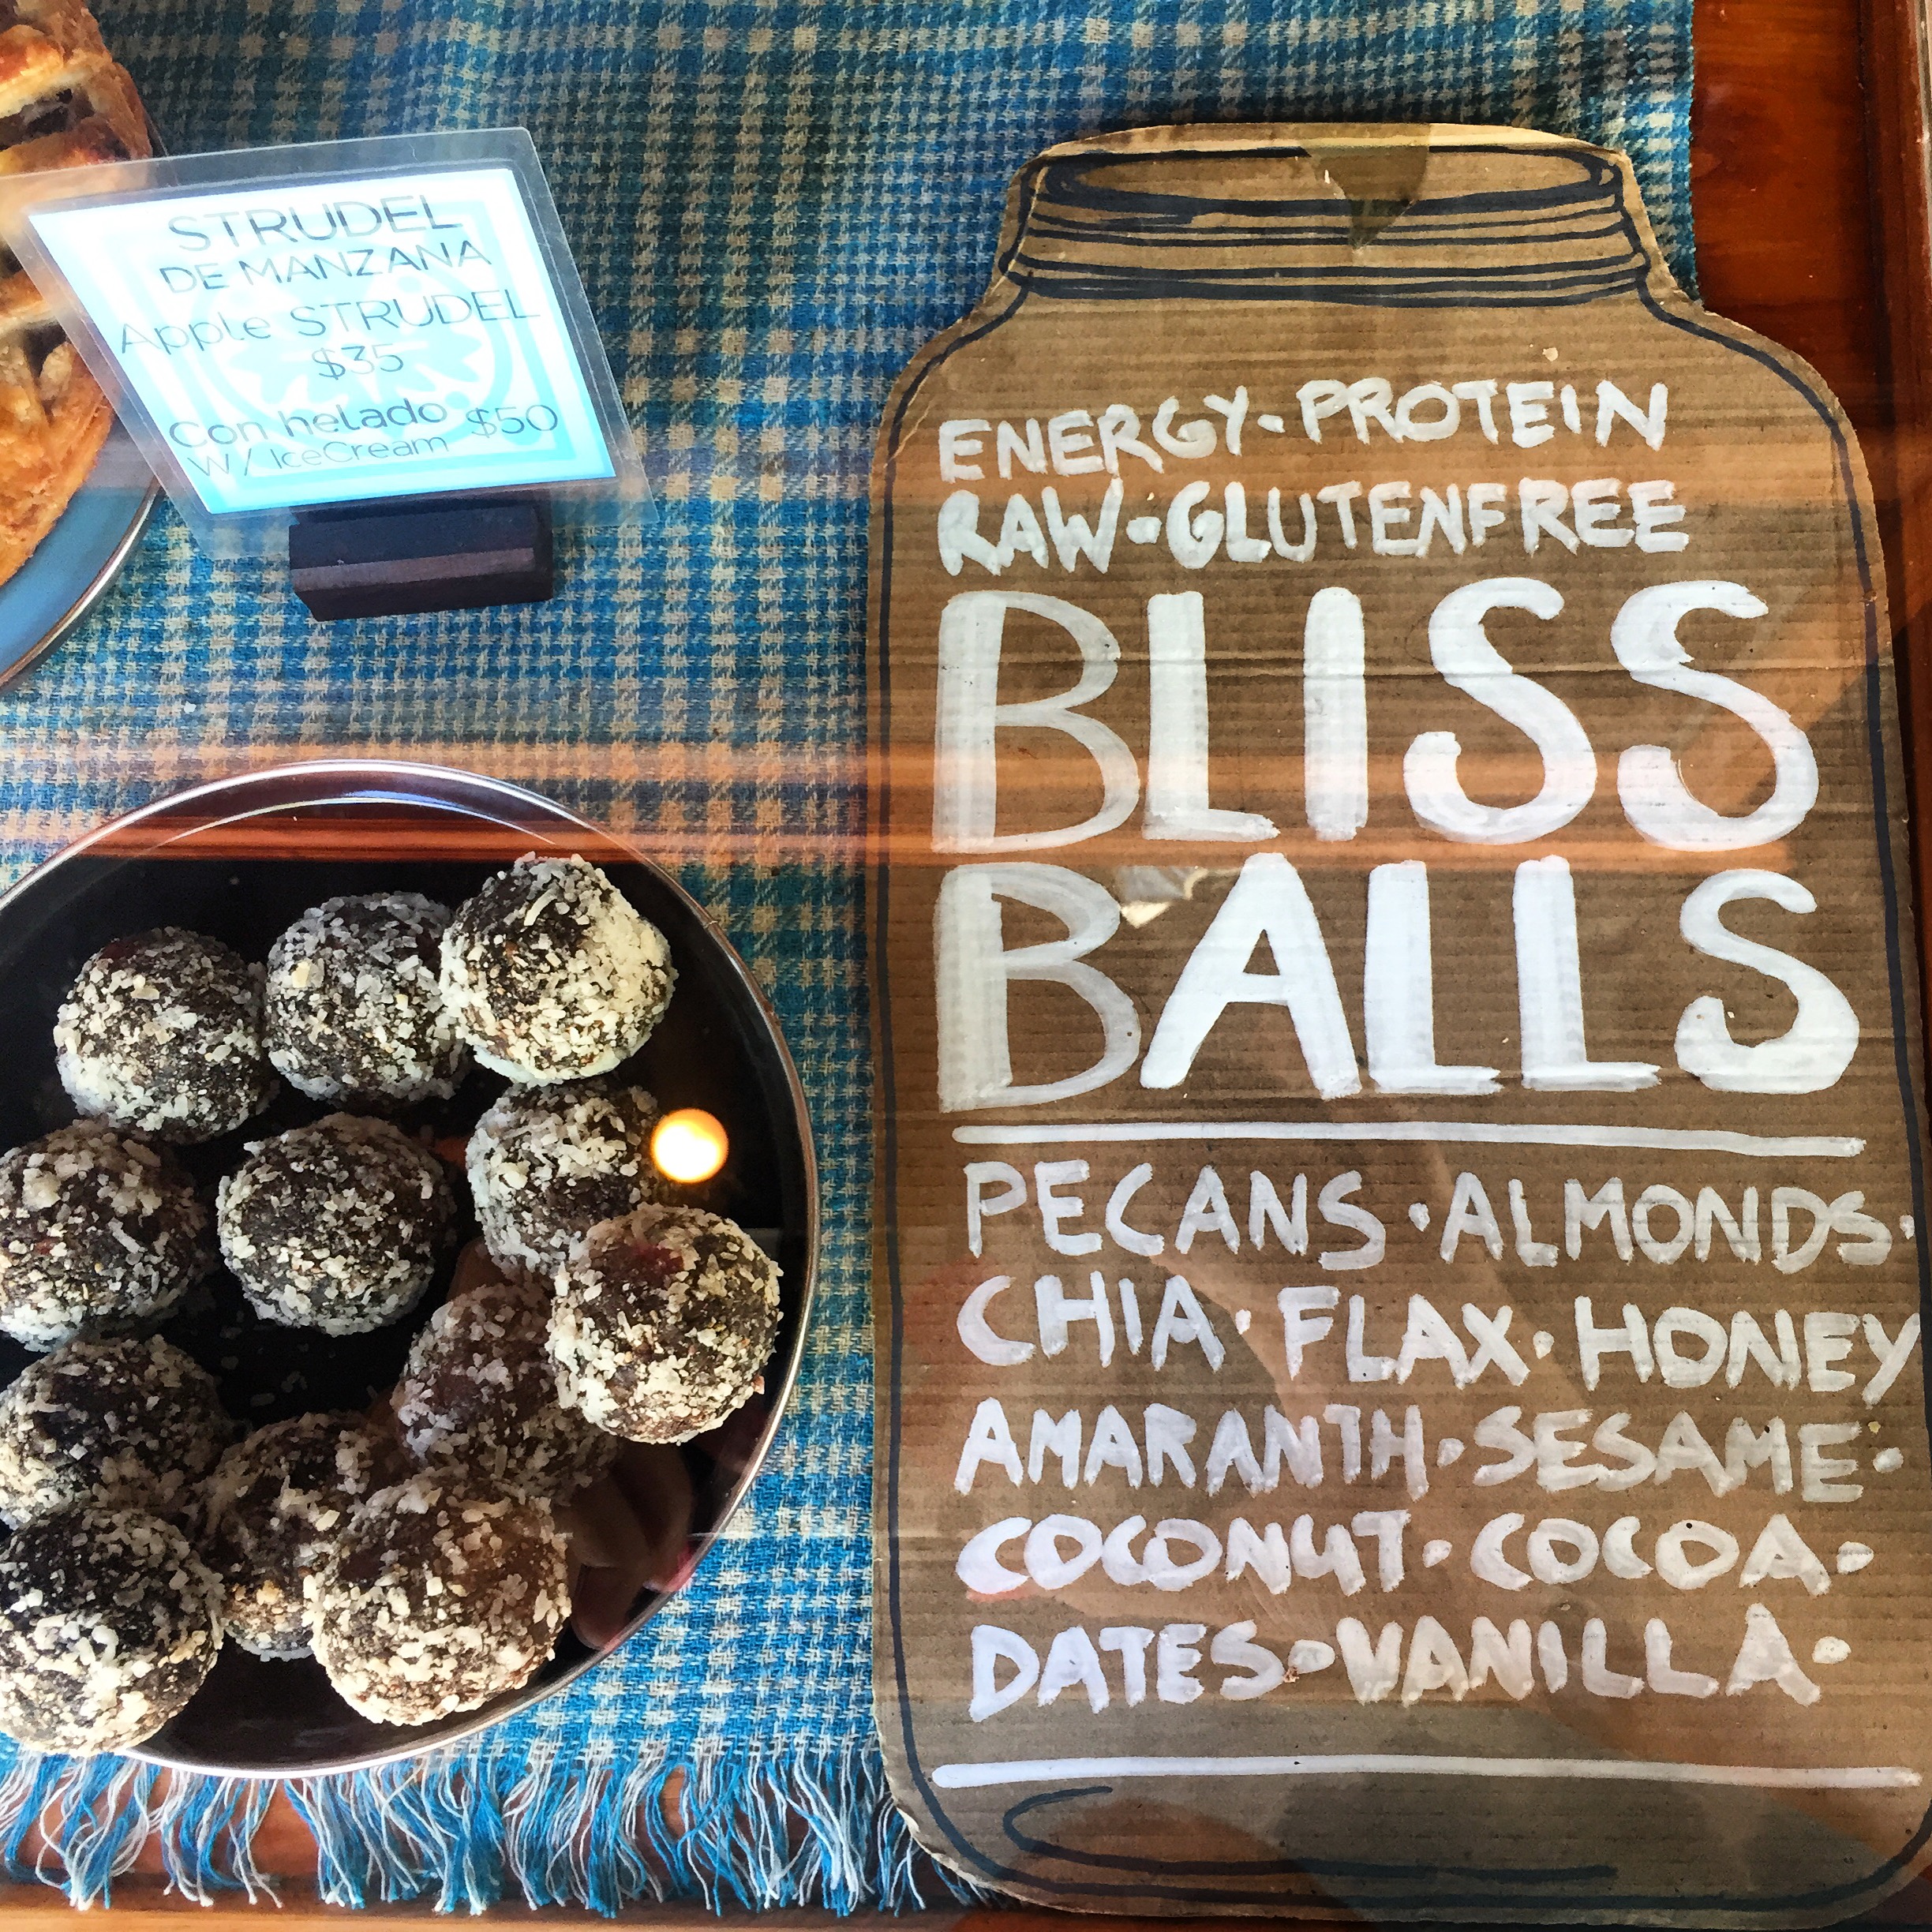 STRUDEL
DE MANZANA
Apple STRUDEL
$35
Con helado $50
W/ IceCream
ENERGY · PROTEIN
RAW · GLUTENFREE
BLISS
BALLS
PECANS · ALMONDS ·
CHIA · FLAX · HONEY
AMARANTH · SESAME ·
COCONUT · COCOA ·
DATES · VANILLA ·